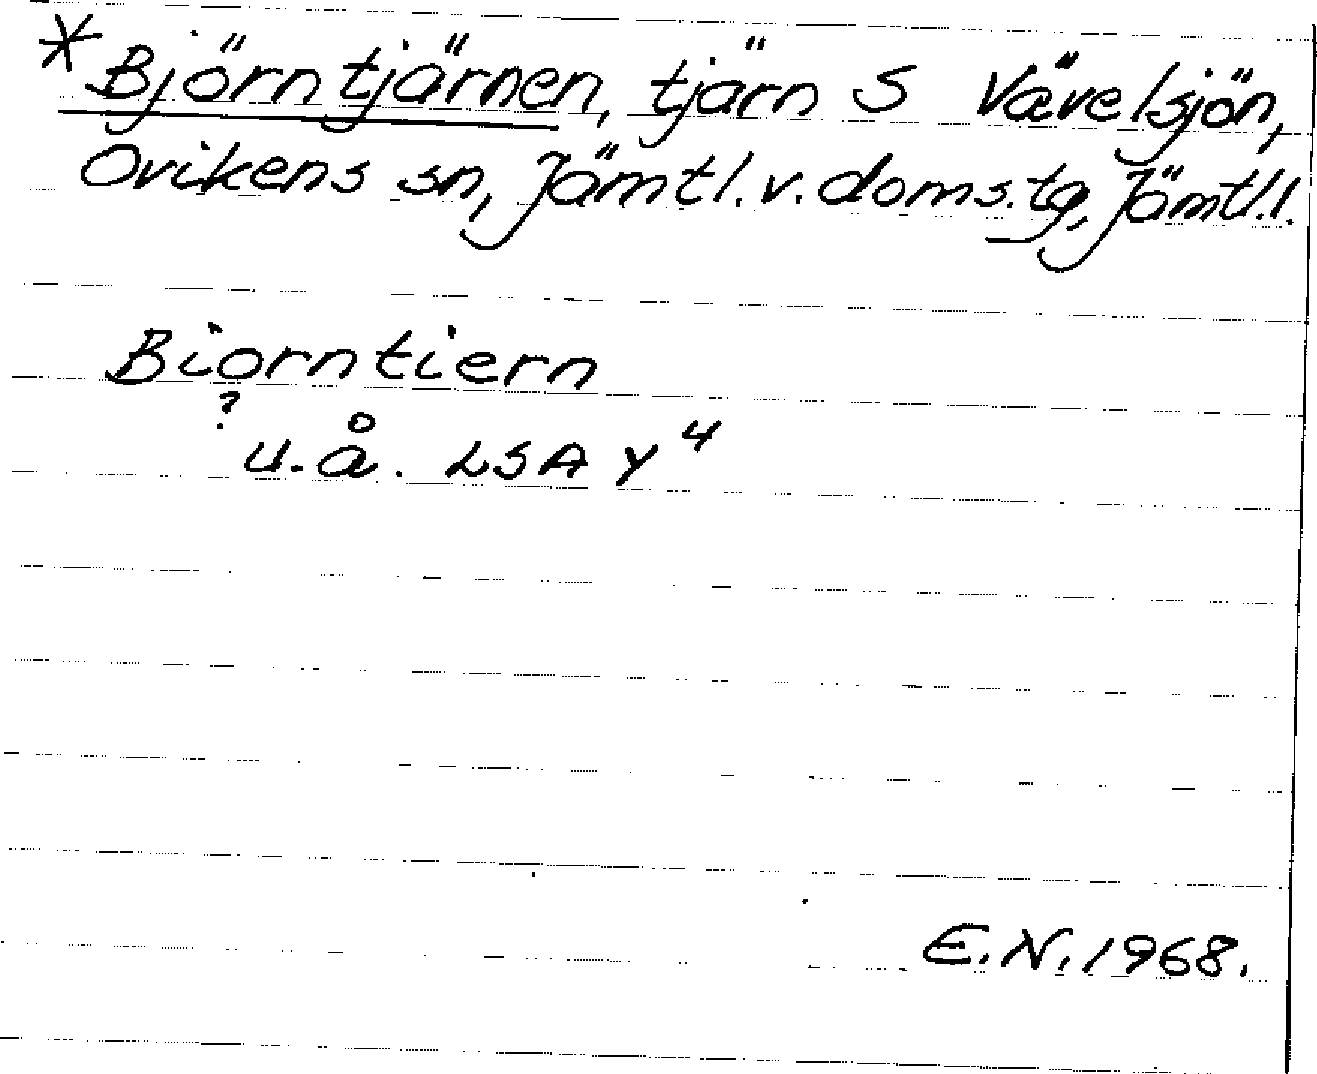 * Björntjärnen, tjärn S Vävelsjön,
Ovikens sn, Jämtl. v. doms. tg, Jämtl. l.
Biorntiern
?
u. å. LSA Y4
E. N. 1968.